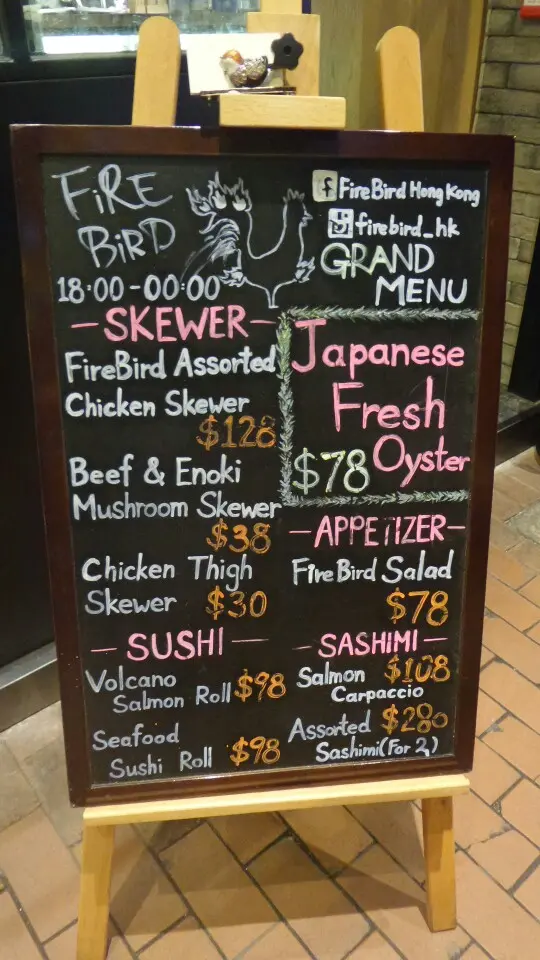 FiRE
BiRD
18:00-00:00
f FireBird Hong Kong
firebird_hk
GRAND
MENU
-SKEWER-
FireBird Assorted
Chicken Skewer
$128
Beef & Enoki
Mushroom Skewer
$38
Chicken Thigh
Skewer $30
Japanese
Fresh
Oyster
$78
-APPETIZER-
FireBird Salad
$78
- SUSHI -
Volcano
Salmon Roll $98
Seafood
Sushi Roll $98
- SASHIMI -
Salmon $108
Carpaccio
Assorted $280
Sashimi (For 2)